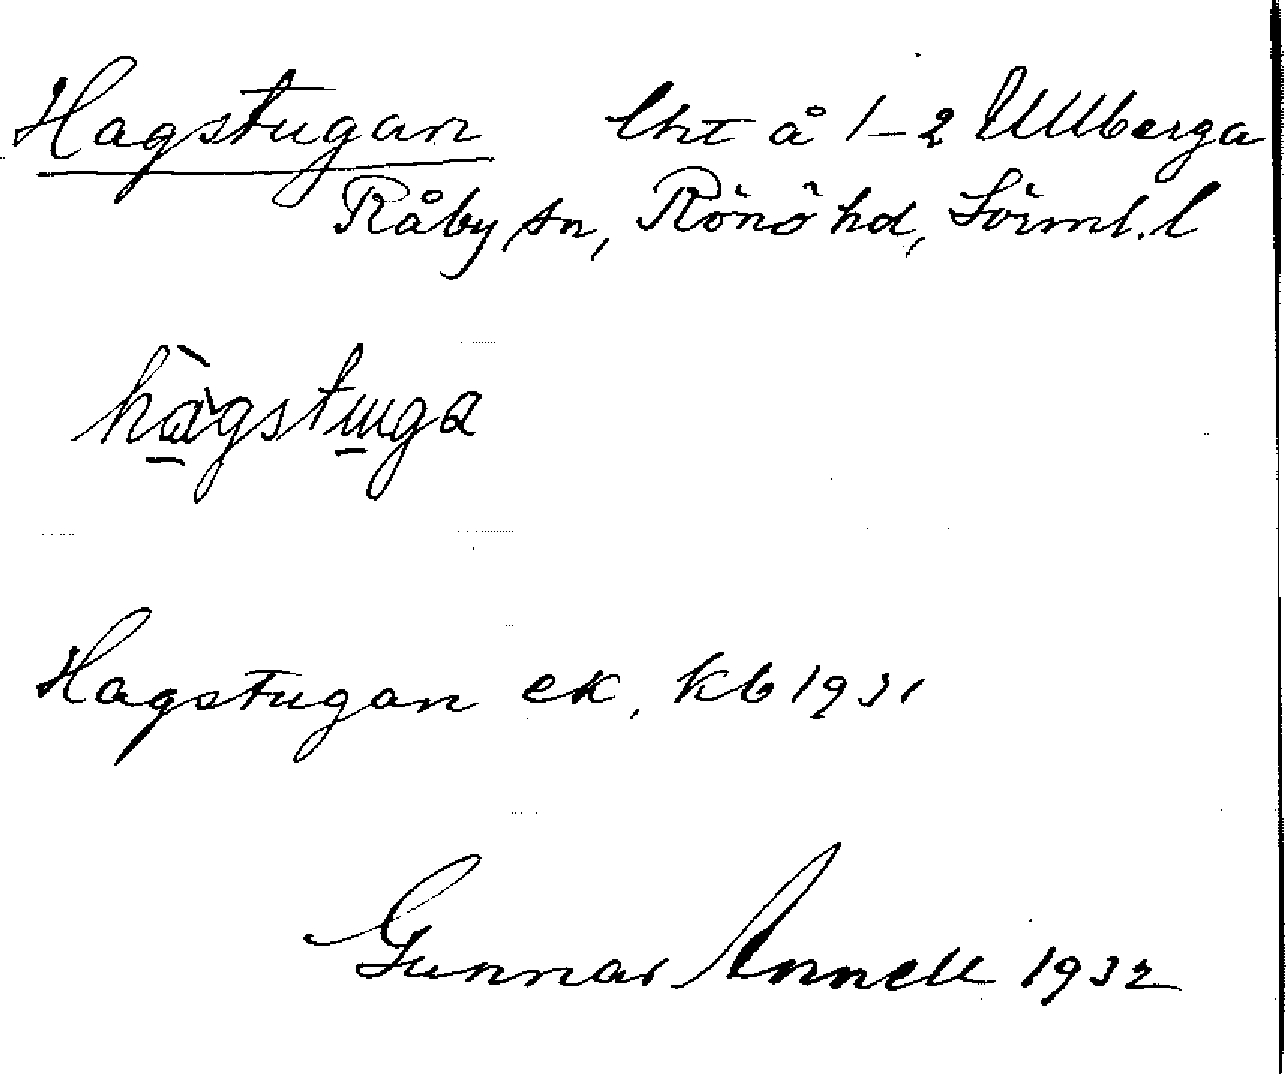 Hagstugan lht å 1-2 Ullberga
Råby sn, Rönö hd, Sörml. l
hàgstuga
Hagstugan ek, kb 1931
Gunnar Annell 1932